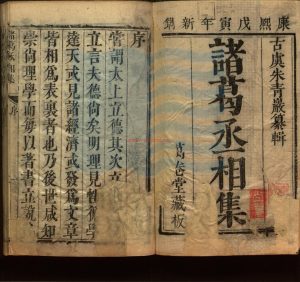 康熙戊寅年新鐫
古虞朱青巖纂輯
諸葛丞相集
萬卷堂藏板
序
嘗謂太上立德其次立
立言夫德尚矣明理見性
達天或見諸經濟或發為文章
皆相為表裏者也乃後世咸知
崇尚理學而每以著書立說
序